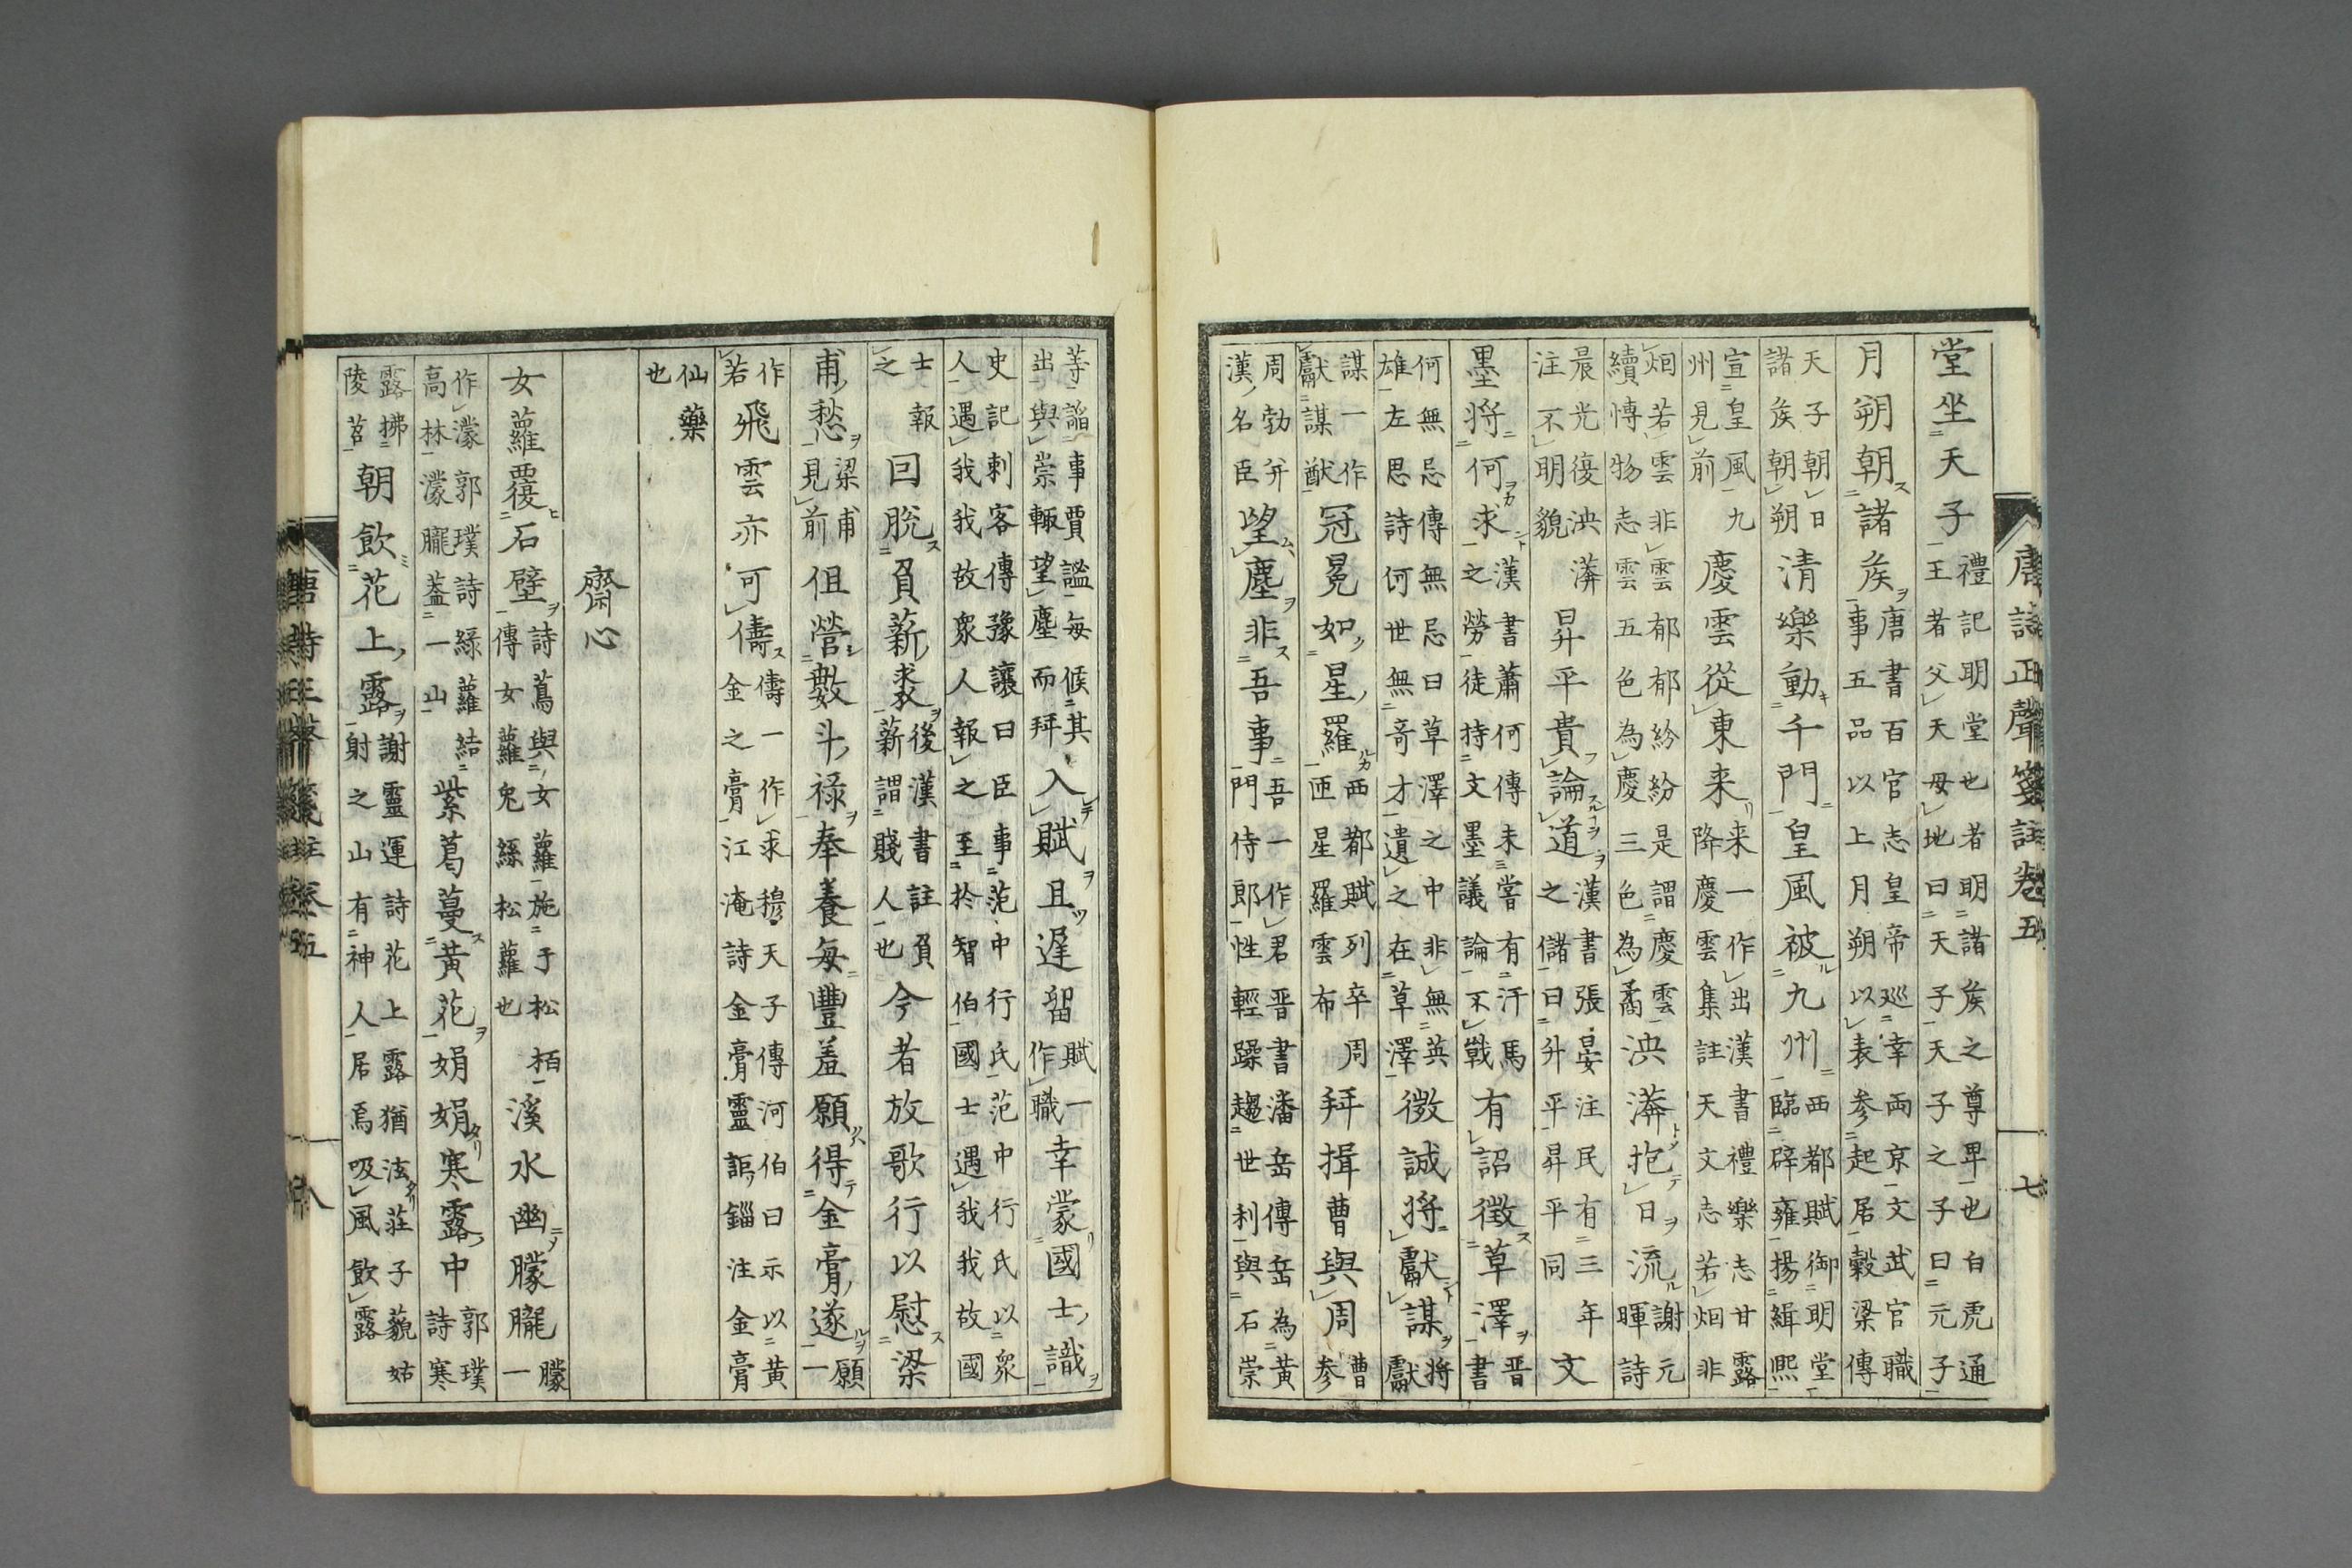 唐詩正聲箋註卷五
七
堂坐天子禮記明堂也者明諸矦之尊卑也白虎通王者父天母地曰天子天子之子曰元子
月朔朝諸矦唐書百官志皇帝巡幸兩京文武官職事五品以上月朔以表參起居穀梁傳
天子朝日諸矦朝朔清樂動千門皇風被九州西都賦御明堂臨辟雍揚緝熙
宣皇風九州見前慶雲從東来来一作出漢書禮樂志甘露降慶雲集註天文志若烟非
烟若雲非雲郁郁紛紛是謂慶雲續博物志雲五色為慶三色為矞泱漭抱日流謝元暉詩
晨光復泱漭注不明貌昇平貴論道漢書張晏注民有三年之儲曰升平昇平同文
墨將何求漢書蕭何傳未嘗有汗馬之勞徒持文墨議論不戰有詔徵草澤晋書
何無忌傳無忌曰草澤之中非無英雄左思詩何世無竒才遺之在草澤微誠將獻謀將獻
謀一作獻謀猷冠冕如星羅西都賦列卒周匝星羅雲布拜揖曹與周曹參
周勃并漢名臣望塵非吾事吾一作君晋書潘岳傳岳為黃門侍郎性輕躁趨世利與石崇
等謟事賈謐每候其出與崇輙望塵而拜入賦且遲留賦一作職幸蒙國士識
史記刺客傳豫讓曰臣事范中行氏范中行氏以衆人遇我我故衆人報之至於智伯國士遇我我故國
士報之回脱負薪裘後漢書註負薪謂賤人也今者放歌行以慰梁
甫愁梁甫見前但營數斗禄奉養每豐羞願得金膏遂願一
作若飛雲亦可儔儔一作求穆天子傳河伯曰示以黃金之膏江淹詩金膏靈詎緇注金膏
仙藥也
齋心
女蘿覆石壁詩蔦與女蘿施于松栢傳女蘿兔絲松蘿也溪水幽朦朧朦一
作濛郭璞詩綠蘿結高林濛朧蓋一山紫葛蔓黃花娟娟寒露中郭璞詩寒
露拂陵苕朝飲花上露謝靈運詩花上露猶泫莊子藐姑射之山有神人居焉吸風飲露
八